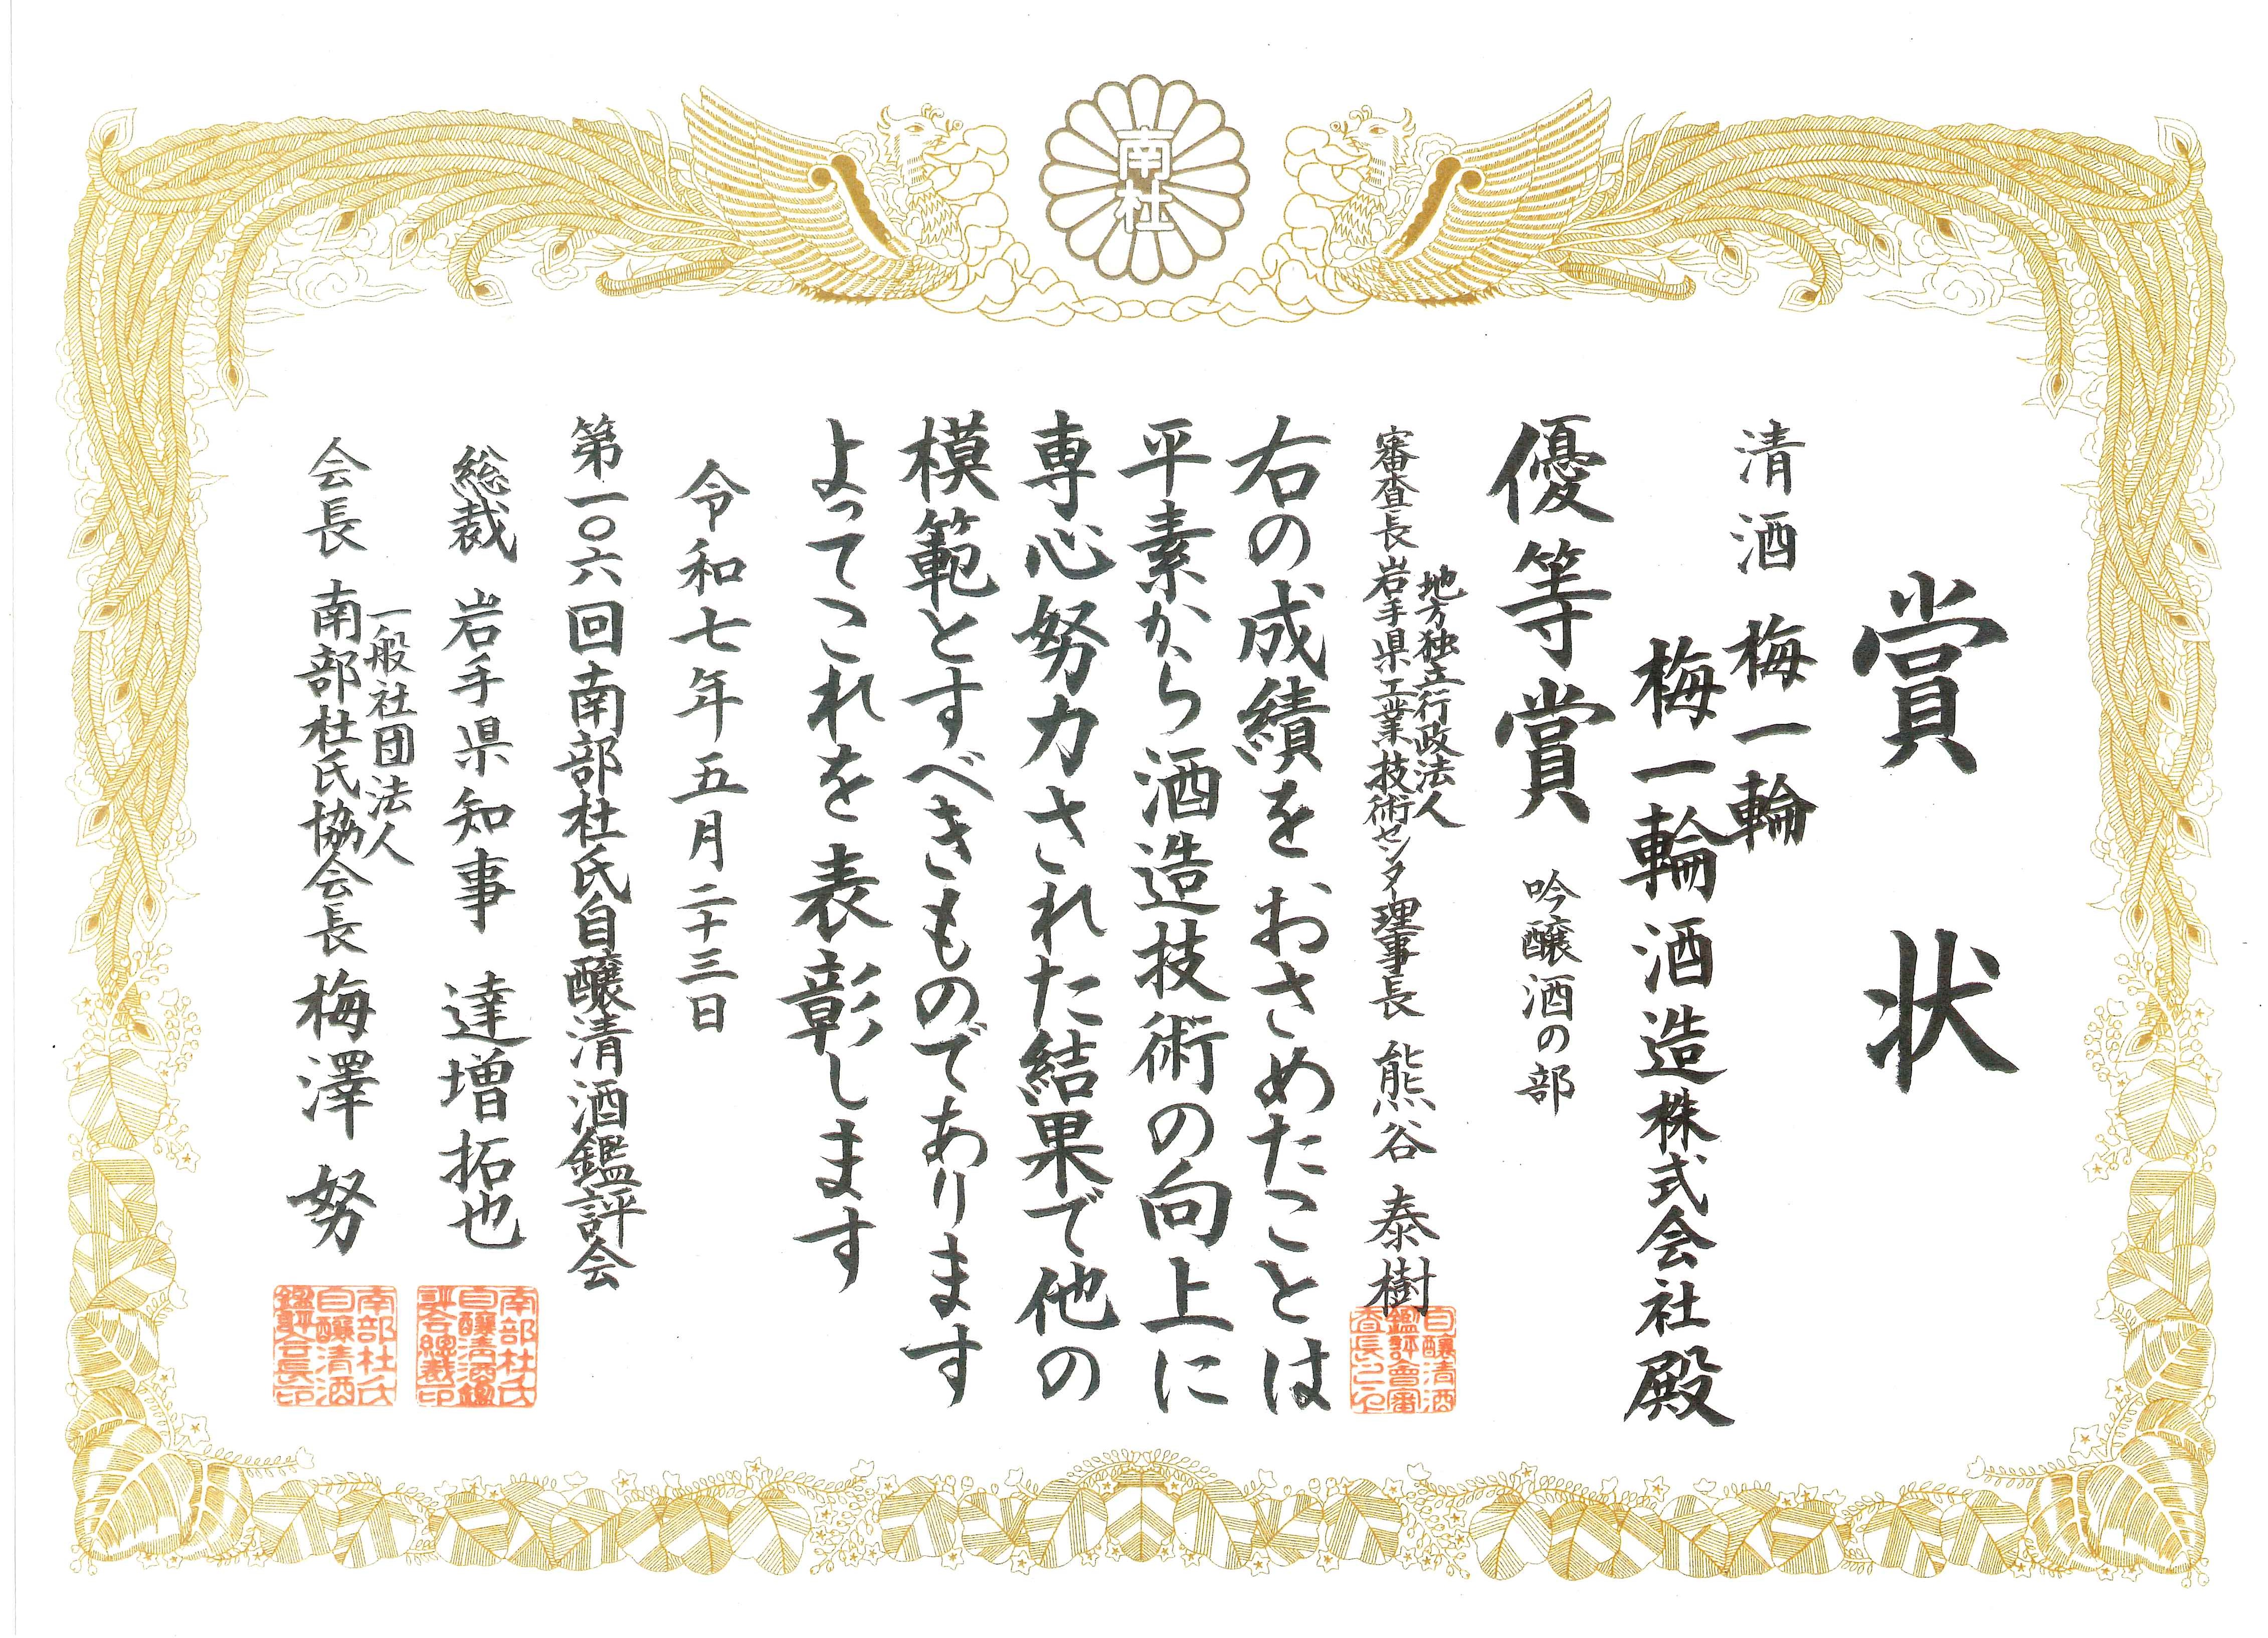 南杜
賞状
清酒 梅一輪
梅一輪酒造株式会社殿
優等賞 吟醸酒の部
地方独立行政法人
審査長 岩手県工業技術センター理事長 熊谷 泰樹
自醸清酒
鑑評會審
査長之印
右の成績をおさめたことは
平素から酒造技術の向上に
専心努力された結果で他の
模範とすべきものであります
よってこれを表彰します
令和七年五月二十三日
第一〇六回南部杜氏自醸清酒鑑評会
総裁 岩手県知事 達増拓也
南部杜氏
自醸清酒鑑
評会總裁印
一般社団法人
会長 南部杜氏協会会長 梅澤 努
南部杜氏
自醸清酒
鑑評会長印